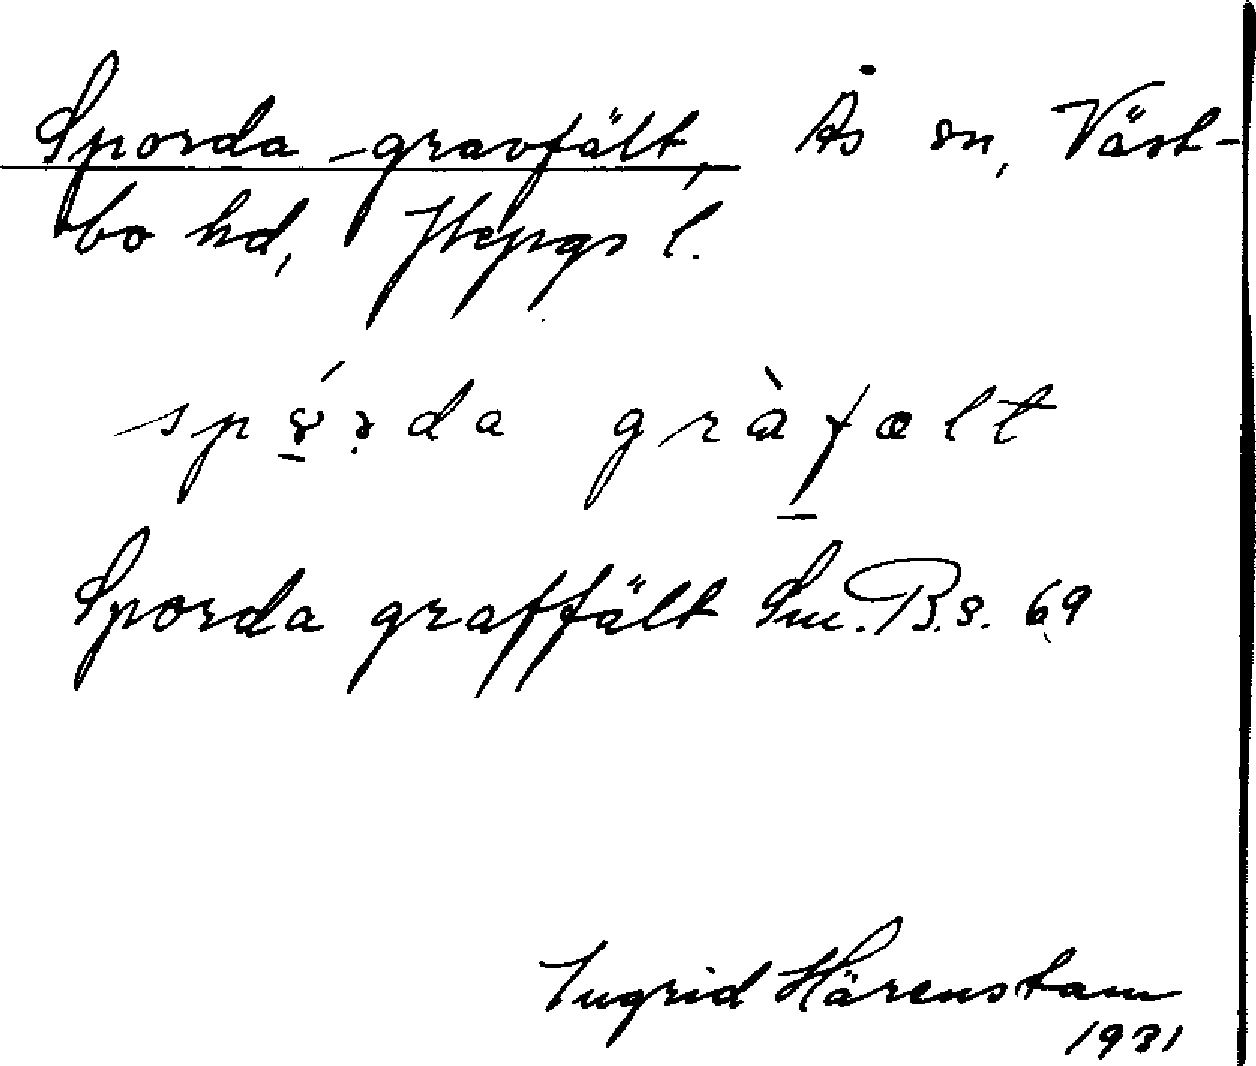 Sporda -gravfält, Ås sn, Väst-
bo hd, Jkpgs l.
Sporda graffält Sm. B. s. 69
Ingrid Härenstam
1931